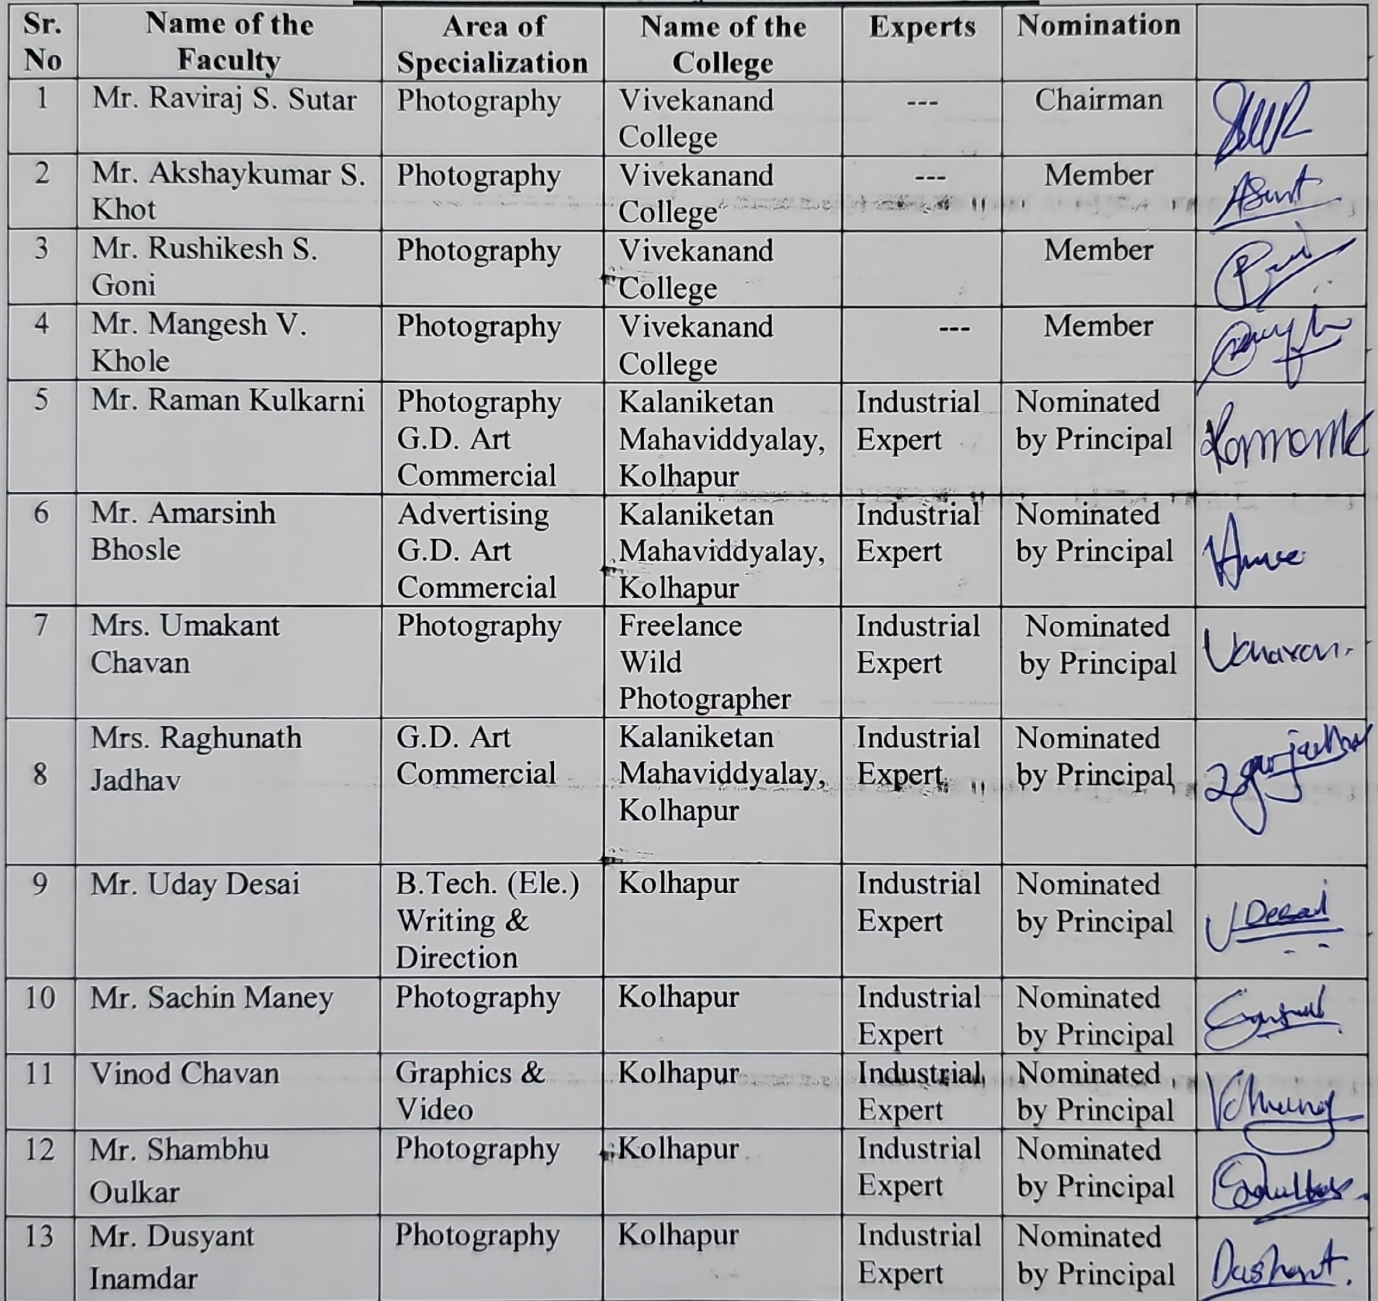 Sr. No Name of the Faculty Area of Specialization Name of the College Experts Nomination
1 Mr. Raviraj S. Sutar Photography Vivekanand College --- Chairman
2 Mr. Akshaykumar S. Khot Photography Vivekanand College --- Member
3 Mr. Rushikesh S. Goni Photography Vivekanand College Member
4 Mr. Mangesh V. Khole Photography Vivekanand College --- Member
5 Mr. Raman Kulkarni Photography G.D. Art Commercial Kalaniketan Mahaviddyalay, Kolhapur Industrial Expert Nominated by Principal
6 Mr. Amarsinh Bhosle Advertising G.D. Art Commercial Kalaniketan Mahaviddyalay, Kolhapur Industrial Expert Nominated by Principal
7 Mrs. Umakant Chavan Photography Freelance Wild Photographer Industrial Expert Nominated by Principal
8 Mrs. Raghunath Jadhav G.D. Art Commercial Kalaniketan Mahaviddyalay, Kolhapur Industrial Expert Nominated by Principal
9 Mr. Uday Desai B.Tech. (Ele.) Writing & Direction Kolhapur Industrial Expert Nominated by Principal UDesai
10 Mr. Sachin Maney Photography Kolhapur Industrial Expert Nominated by Principal
11 Vinod Chavan Graphics & Video Kolhapur Industrial Expert Nominated by Principal
12 Mr. Shambhu Oulkar Photography Kolhapur Industrial Expert Nominated by Principal
13 Mr. Dusyant Inamdar Photography Kolhapur Industrial Expert Nominated by Principal